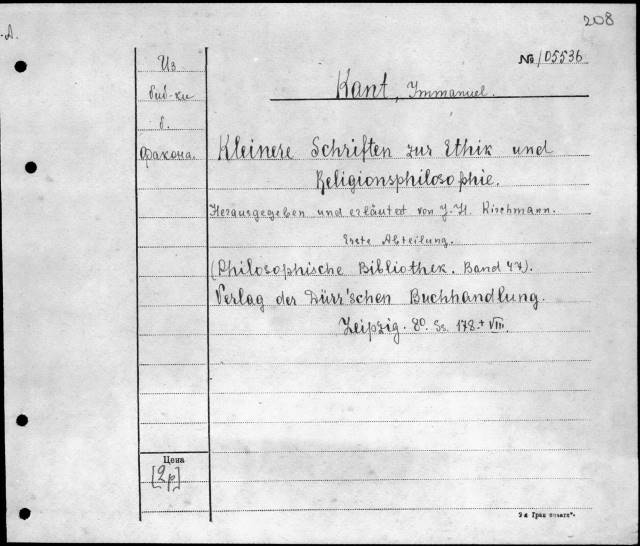 208
№ 105536
Из
биб-ки
б.
Фахона.
Kant, Immanuel.
Kleinere Schriften zur Ethik und
Religionsphilosophie.
Herausgegeben und erläutert von J.-H. Kirchmann.
Erste Abteilung.
(Philosophische Bibliothek. Band 47).
Verlag der Dürr'schen Buchhandlung.
Leipzig. 8°. Ss. 178 + VIII.
Цена
[2р]